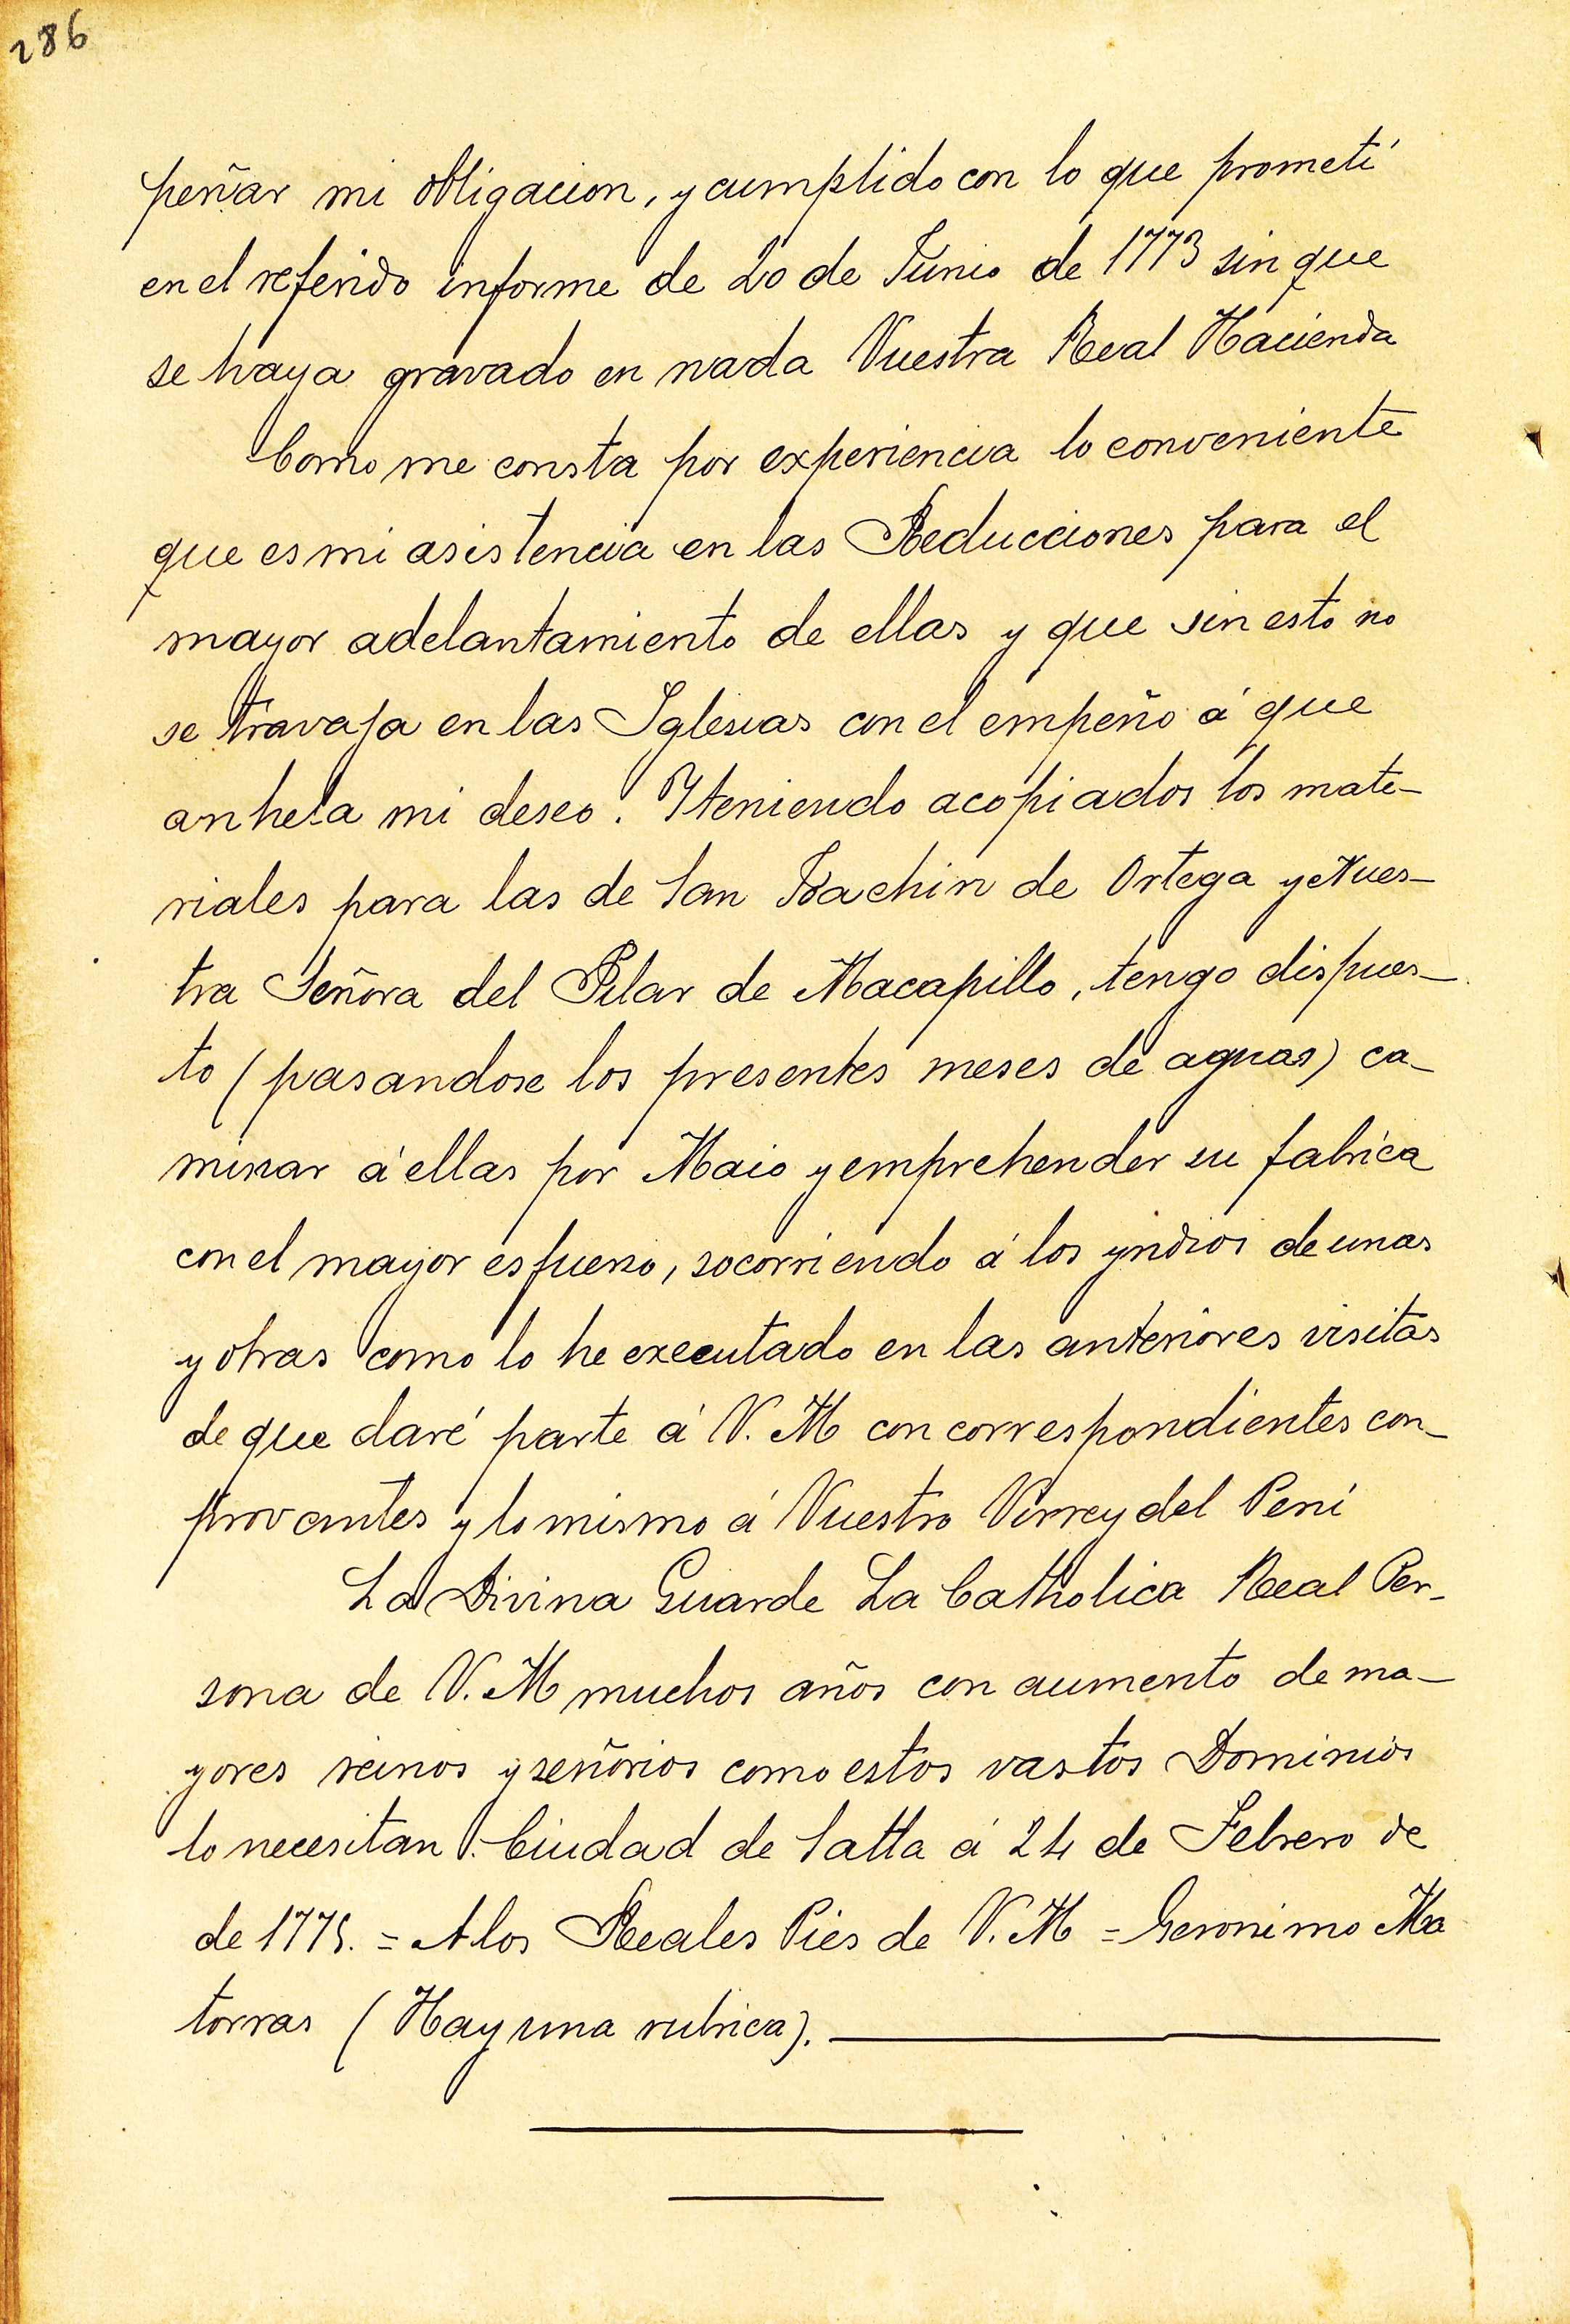 286
peñar mi obligacion, y cumplido con lo que prometí
en el referido informe de 20 de Junio de 1773 sin que
se haya gravado en nada Vuestra Real Hacienda
Como me consta por experiencia lo conveniente
que es mi asistencia en las Reducciones para el
mayor adelantamiento de ellas y que sin esto no
se travaja en las Iglesias con el empeño á que
anhela mi deseo. Y teniendo acopiados los mate-
riales para las de San Joachin de Ortega y Nues-
tra Señora del Pilar de Macapillo, tengo dispues-
to (pasandose los presentes meses de aguas) ca-
minar á ellas por Maio y emprehender su fabrica
con el mayor esfuerso, socorriendo á los yndios de unas
y otras como lo he executado en las anteriores visitas
de que daré parte á V. M con correspondientes con-
provantes y lo mismo á Vuestro Virrey del Perú
La Divina Guarde La Catholica Real Per-
sona de V. M muchos años con aumento de ma-
yores reinos y señorios como estos vastos Dominios
lo necesitan. Ciudad de Salta á 24 de Febrero de
de 1775. = A los Reales Pies de V. M = Geronimo Ma
torras (Hay una rubrica).